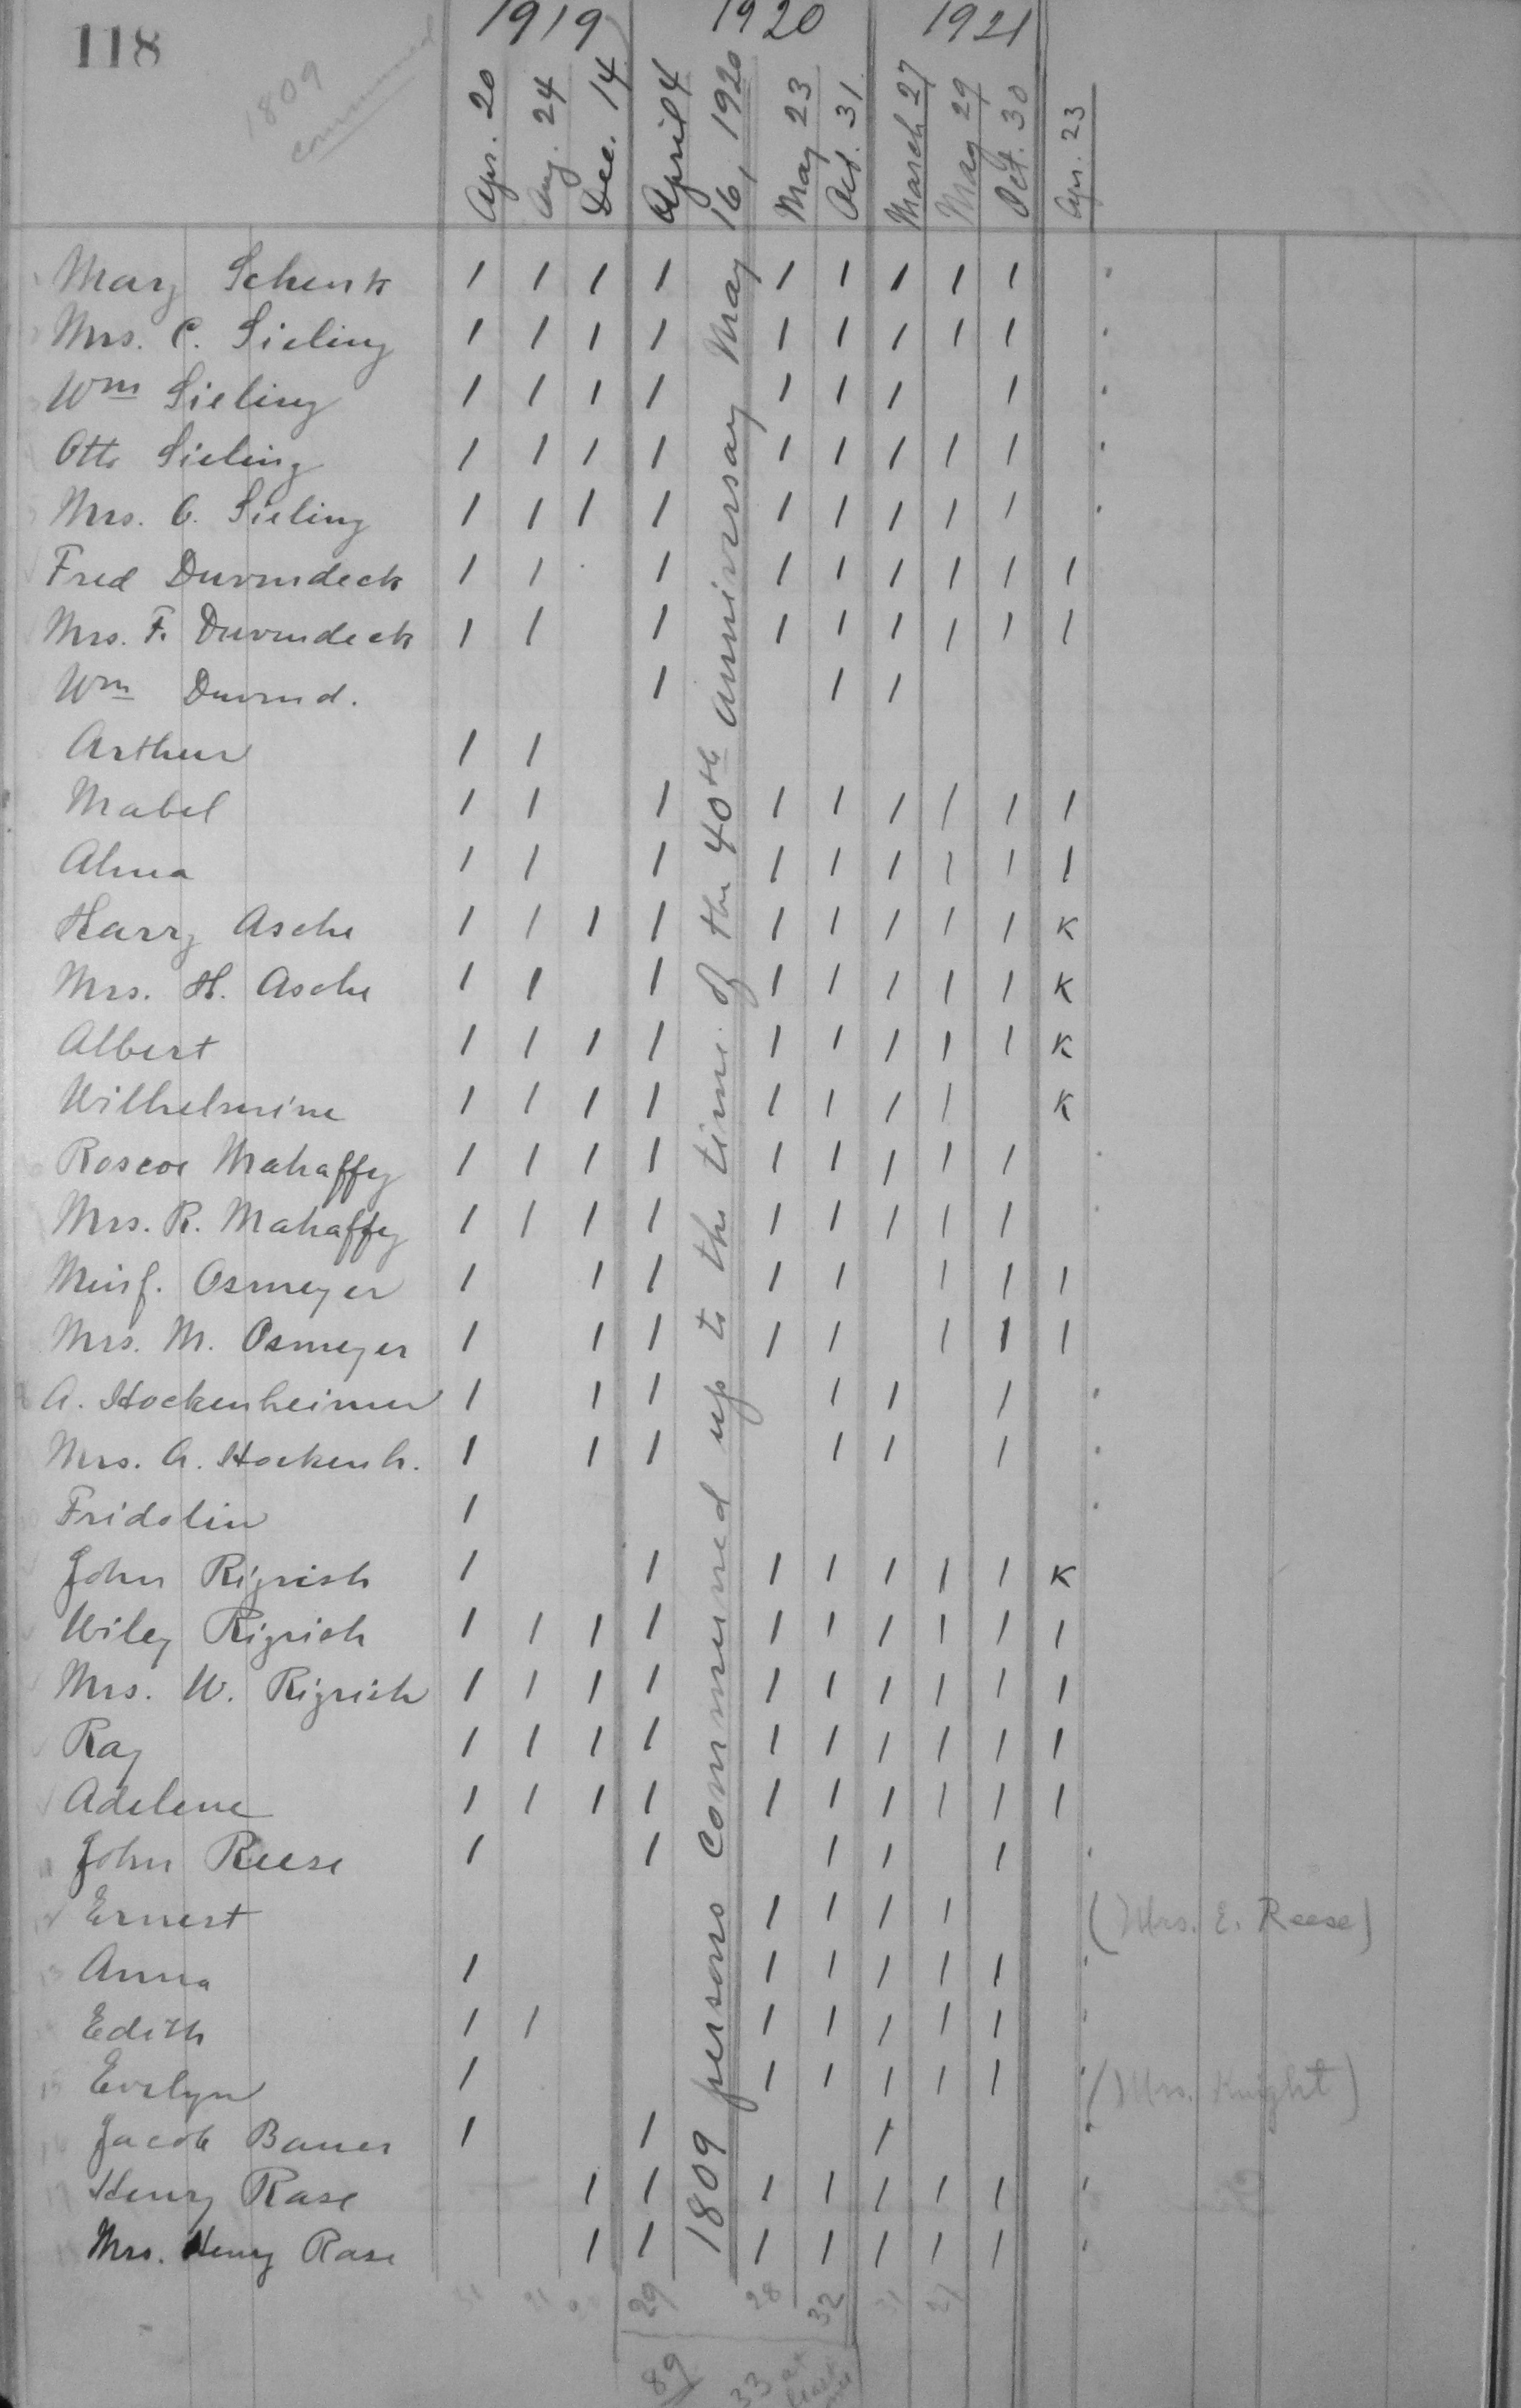 118
1809
communed
1919 1920 1921
Apr. 20 Aug. 24 Dec. 14 April 4 May 23 Oct. 31 March 27 May 29 Oct. 30 Apr. 23
1809 persons communed up to the time of the 40th anniversary May 16, 1920
Mary Schenk 1 1 1 1 1 1 1 1 1
Mrs. C. Sieling 1 1 1 1 1 1 1 1 1
Wm Sieling 1 1 1 1 1 1 1 1
Otto Sieling 1 1 1 1 1 1 1 1 1
Mrs. O. Sieling 1 1 1 1 1 1 1 1 1
Fred Duvendeck 1 1 1 1 1 1 1 1 1
Mrs. F. Duvendeck 1 1 1 1 1 1 1 1 1
Wm Duvend. 1 1 1
Arthur 1 1
Mabel 1 1 1 1 1 1 1 1 1
Alma 1 1 1 1 1 1 1 1 1
Harry Asche 1 1 1 1 1 1 1 1 1 K
Mrs. H. Asche 1 1 1 1 1 1 1 1 K
Albert 1 1 1 1 1 1 1 1 1 K
Wilhelmine 1 1 1 1 1 1 1 1 K
Roscoe Mahaffey 1 1 1 1 1 1 1 1 1
Mrs. R. Mahaffey 1 1 1 1 1 1 1 1 1
Meinf. Osmeyer 1 1 1 1 1 1 1 1
Mrs. M. Osmeyer 1 1 1 1 1 1 1 1
A. Hockenheimer 1 1 1 1 1 1
Mrs. A. Hockenh. 1 1 1 1 1 1
Fridolin 1
John Rigrish 1 1 1 1 1 1 1 K
Wiley Rigrish 1 1 1 1 1 1 1 1 1 1
Mrs. W. Rigrish 1 1 1 1 1 1 1 1 1 1
Ray 1 1 1 1 1 1 1 1 1 1
Adelene 1 1 1 1 1 1 1 1 1 1
11 John Reese 1 1 1 1 1
12 Ernest 1 1 1 1 (Mrs. E. Reese)
13 Anna 1 1 1 1 1 1
Edith 1 1 1 1 1 1 1
15 Evelyn 1 1 1 1 1 1 (Mrs. Knight)
16 Jacob Bauer 1 1 1
17 Henry Rase 1 1 1 1 1 1 1
Mrs. Henry Rase 1 1 1 1 1 1 1
29 28 32 31 27
89 33 at least